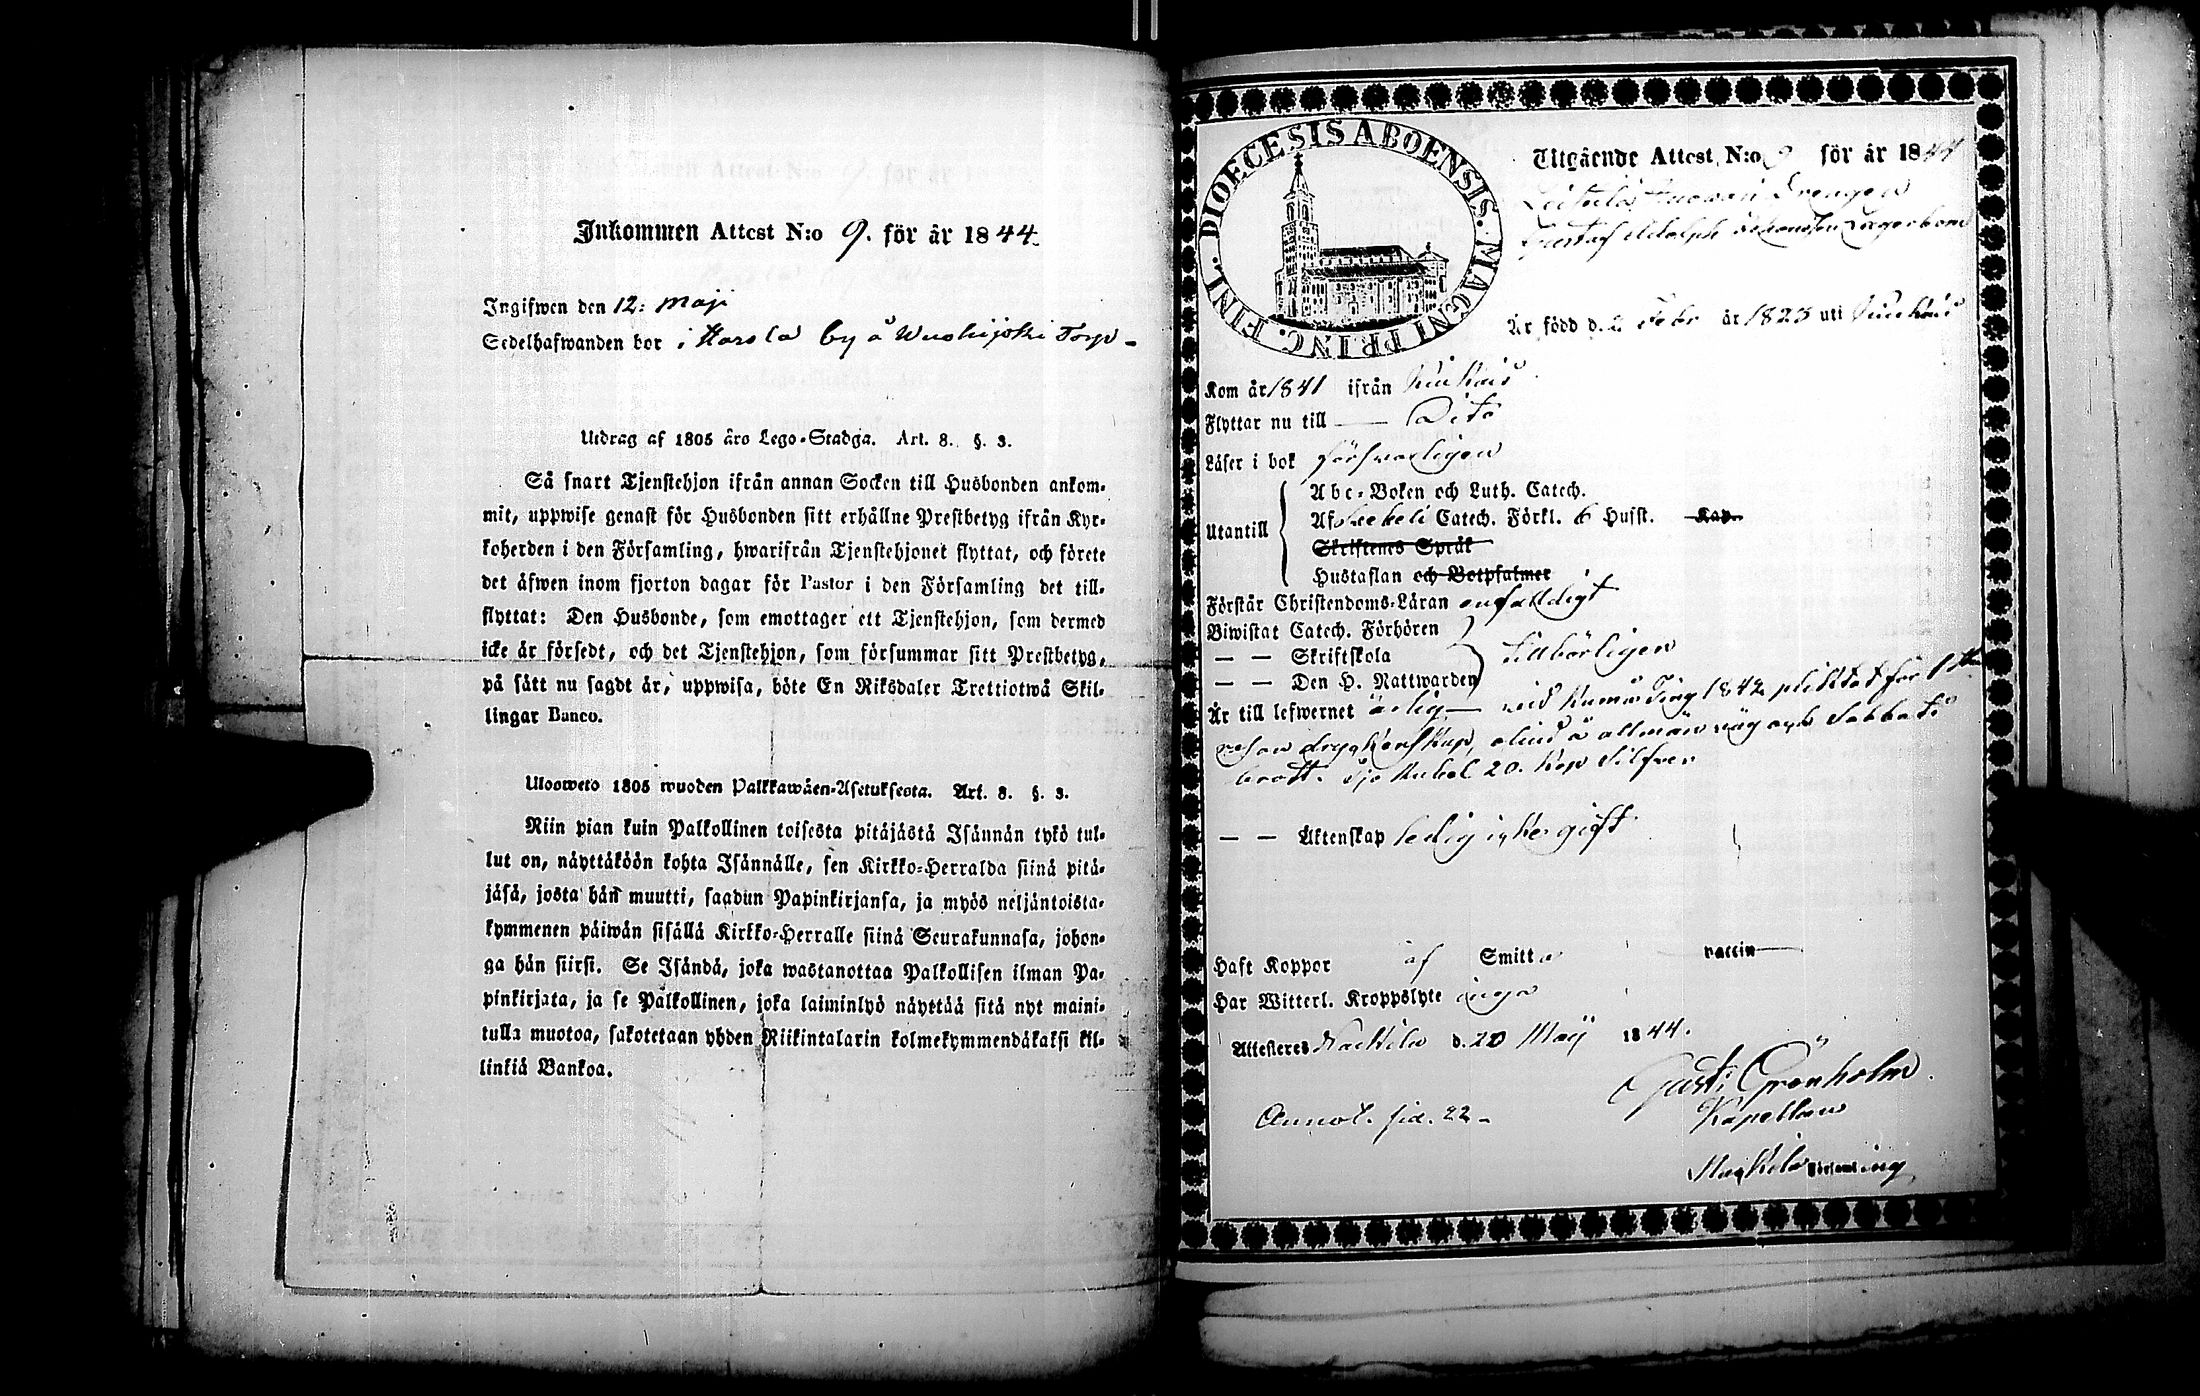 Inkommen Attest N:o 9. för år 1844.
Ingifwen den 12: Maji
Sedelhafwanden bor i Harola by å Torp -
Utdrag af 1805 års Lego-Stadga. Art. 8. §. 3.
Så snart Tjenstehjon ifrån annan Socken till Husbonden ankom-
mit, uppwise genast för Husbonden sitt erhållne Prestbetyg ifrån Kyr-
koherden i den Församling, hwarifrån Tjenstehjonet flyttat, och förete
det äfwen inom fjorton dagar för Pastor i den Församling det till-
flyttat: Den Husbonde, som emottager ett Tjenstehjon, som dermed
icke är försedt, och det Tjenstehjon, som försummar sitt Prestbetyg,
på sätt nu sagdt är, uppwisa, böte En Riksdaler Trettiotwå Skil-
lingar Banco.
Ulosweto 1805 wuoden Palkkawäen-Asetuksesta. Art. 8. §. 3.
Niin pian kuin Palkollinen toisesta pitäjästä Isännän tykö tul-
lut on, näyttäköön kohta Isännälle, sen Kirkko-Herralda siinä pitä-
jäsä, josta hän muutti, saadun Papinkirjansa, ja myös neljäntoista-
kymmenen päiwän sisällä Kirkko-Herralle siinä Seurakunnasa, johon-
ga hän siirsi. Se Isändä, joka wastanottaa Palkollisen ilman Pa-
pinkirjata, ja se Palkollinen, joka laiminlyö näyttää sitä nyt maini-
tulla muotoa, sakotetaan yhden Riikintalarin kolmekymmendäkaksi kil-
linkiä Bankoa.
DIOECESIS ABOENSIS. MAGNI PRINC. FINL.
Utgående Attest, N:o 9 för år 1844
Drengen
Gustaf Adolph Johansson Lagerbom
Är född d. 2 Febr år 1823 uti Kiukais
Kom år 1841 ifrån Kiukais
Flyttar nu till — Dito
Läser i bok försvarligen
Utantill
Abc-Boken och Luth. Catech.
Af Catech. Förkl. 6 Hufst. Kap.
Skriftenes Språk
Hustaflan och Botpsalmer
Förstår Christendoms-Läran enfalldigt
Biwistat Catech. Förhören
— — Skriftskola tillbörligen
— — Den H. Nattwarden
Är till lefwernet ärlig — vid Kumo Ting 1842 pliktat för 1sta
resan dryckenskap, oliud å allmän väg och Sabbats
brott. Sju Rubel 20. Kop Silfver
— — Äktenskap ledig icke gift
Haft Koppor af Smitta vaccin —
Har Witterl. Kroppslyte inga
Attesteres Nackila d. 20 Maij 1844.
Gust: Grönholm
Kapellan
Nackila Församling
Annot. sid. 22 -